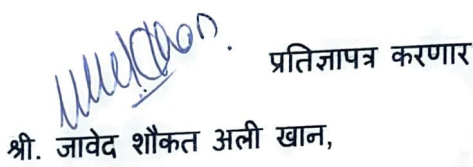 प्रतिज्ञापत्र करणार
श्री. जावेद शौकत अली खान,